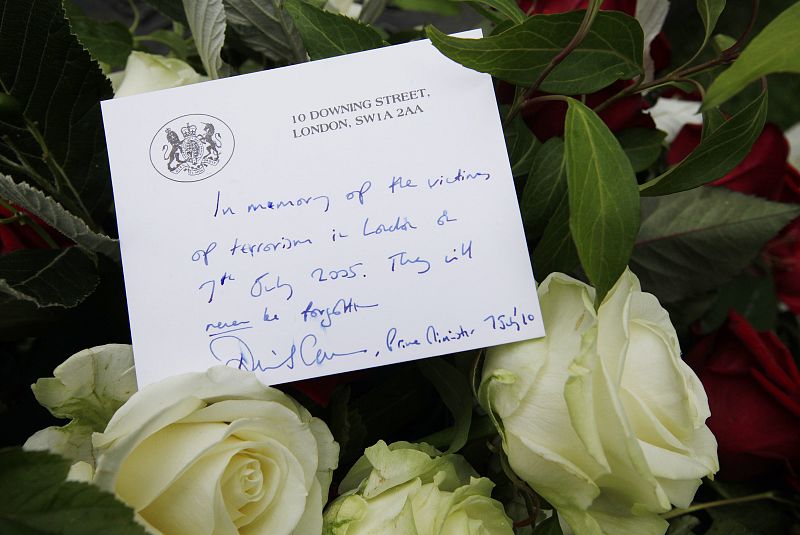 10 DOWNING STREET,
LONDON, SW1A 2AA
In memory of the victims
of terrorism in London on
7th July 2005. They will
never be forgotten
David Cameron, Prime Minister 7 July '10